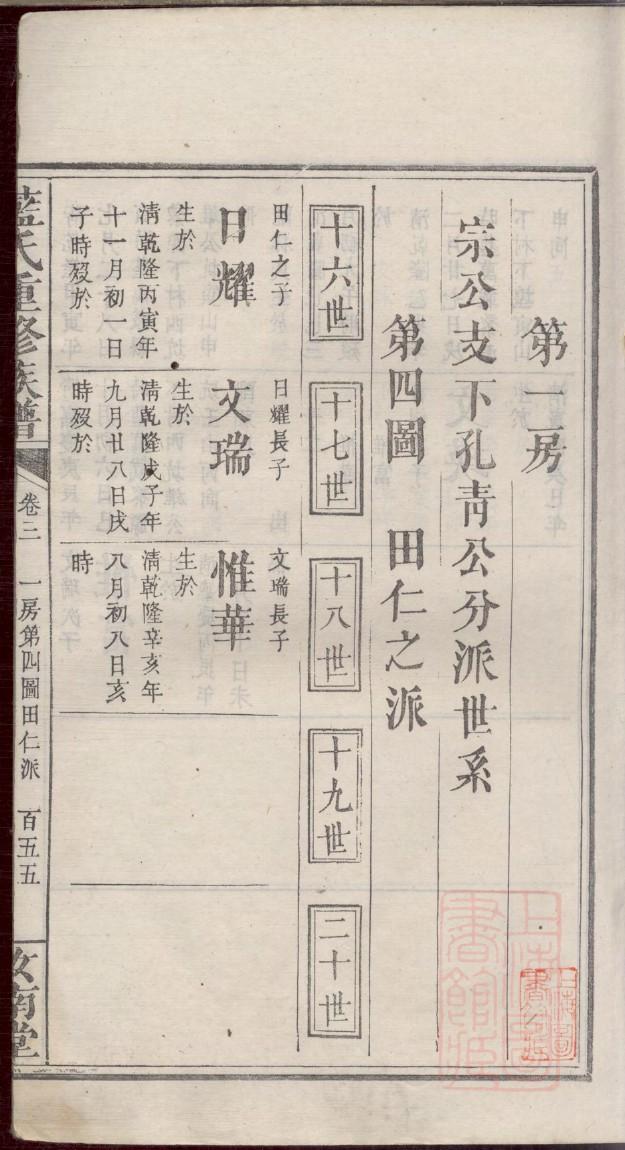 第一房
宗公支下孔青公分派世系
第四圖　田仁之派
十六世
十七世
十八世
十九世
二十世
田仁之子
日耀
生於
清乾隆丙寅年
十一月初一日
子時歿於
日耀長子
文瑞
生於
清乾隆戊子年
九月廿八日戌
時歿於
文瑞長子
惟華
生於
清乾隆辛亥年
八月初八日亥
時
藍氏重修族譜
卷三
一房第四圖田仁派
百五五
汝南堂